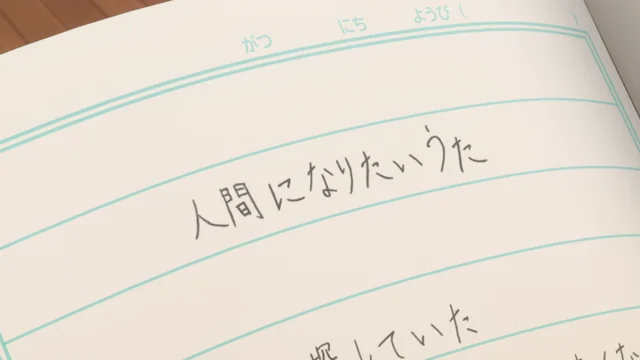 がつ にち ようび( )
人間になりたいうた
探していた